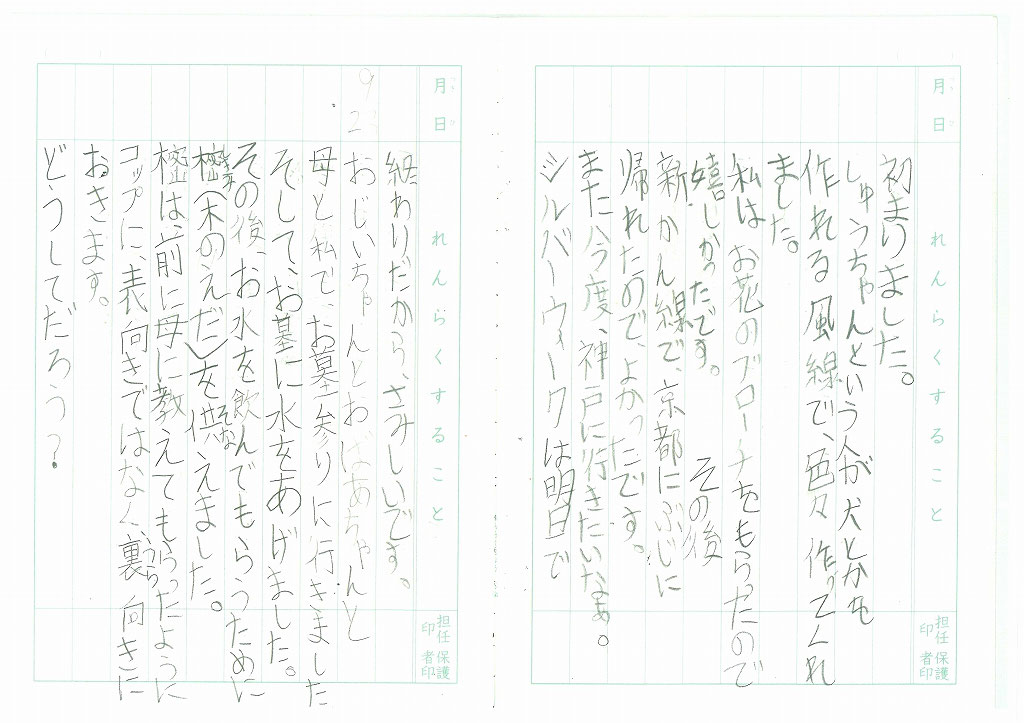 月 日
れんらくすること
担任印 保護者印
初まりました。
しゅうちゃんという人が犬とかも
作れる風線で、色々作ってくれ
ました。
私はお花のブローチをもらったので
嬉しかったです。 その後
新かん線で、京都にぶじに
帰れたので、よかったです。
また今度、神戸に行きたいなぁ。
シルバーウィークは明日で
月 日
れんらくすること
担任印 保護者印
終わりだから、さみしいです。
9 23
おじいちゃんとおばあちゃんと
母と私で、お墓参りに行きました
そして、お墓に水をあげました。
その後、お水を飲んでもらうために
樒(木のえだ)を供えました。
樒は、前に母に教えてもらったように
コップに、表向きではなく、裏向きに
おきます。
どうしてだろう?